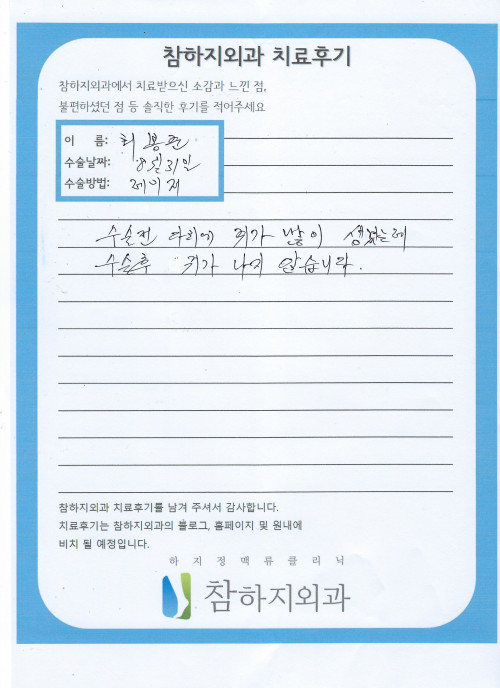 참하지외과 치료후기
참하지외과에서 치료받으신 소감과 느낀 점,
불편하셨던 점 등 솔직한 후기를 적어주세요
이 름: 최봉련
수술날짜: 8월 31일
수술방법: 레이저
수술전 다리에 쥐가 많이 생겼는데
수술후 쥐가 나지 않습니다.
참하지외과 치료후기를 남겨 주셔서 감사합니다.
치료후기는 참하지외과의 블로그, 홈페이지 및 원내에
비치 될 예정입니다.
하지정맥류클리닉
참하지외과